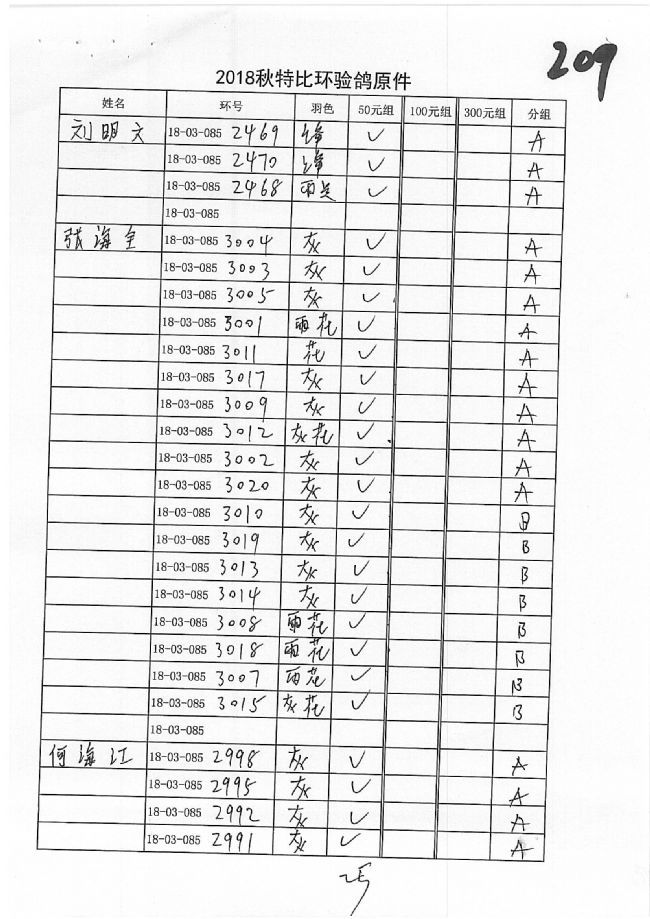 209
2018秋特比环验鸽原件
姓名 环号 羽色 50元组 100元组 300元组 分组
刘明文 18-03-085 2469 绛 ✓ A
18-03-085 2470 绛 ✓ A
18-03-085 2468 雨点 ✓ A
18-03-085
张海全 18-03-085 3004 灰 ✓ A
18-03-085 3003 灰 ✓ A
18-03-085 3005 灰 ✓ A
18-03-085 3001 雨花 ✓ A
18-03-085 3011 花 ✓ A
18-03-085 3017 灰 ✓ A
18-03-085 3009 灰 ✓ A
18-03-085 3012 灰花 ✓ A
18-03-085 3002 灰 ✓ A
18-03-085 3020 灰 ✓ A
18-03-085 3010 灰 ✓ B
18-03-085 3019 灰 ✓ B
18-03-085 3013 灰 ✓ B
18-03-085 3014 灰 ✓ B
18-03-085 3008 雨花 ✓ B
18-03-085 3018 雨花 ✓ B
18-03-085 3007 雨花 ✓ B
18-03-085 3015 灰花 ✓ B
18-03-085
何海江 18-03-085 2998 灰 ✓ A
18-03-085 2995 灰 ✓ A
18-03-085 2992 灰 ✓ A
18-03-085 2991 灰 ✓ A